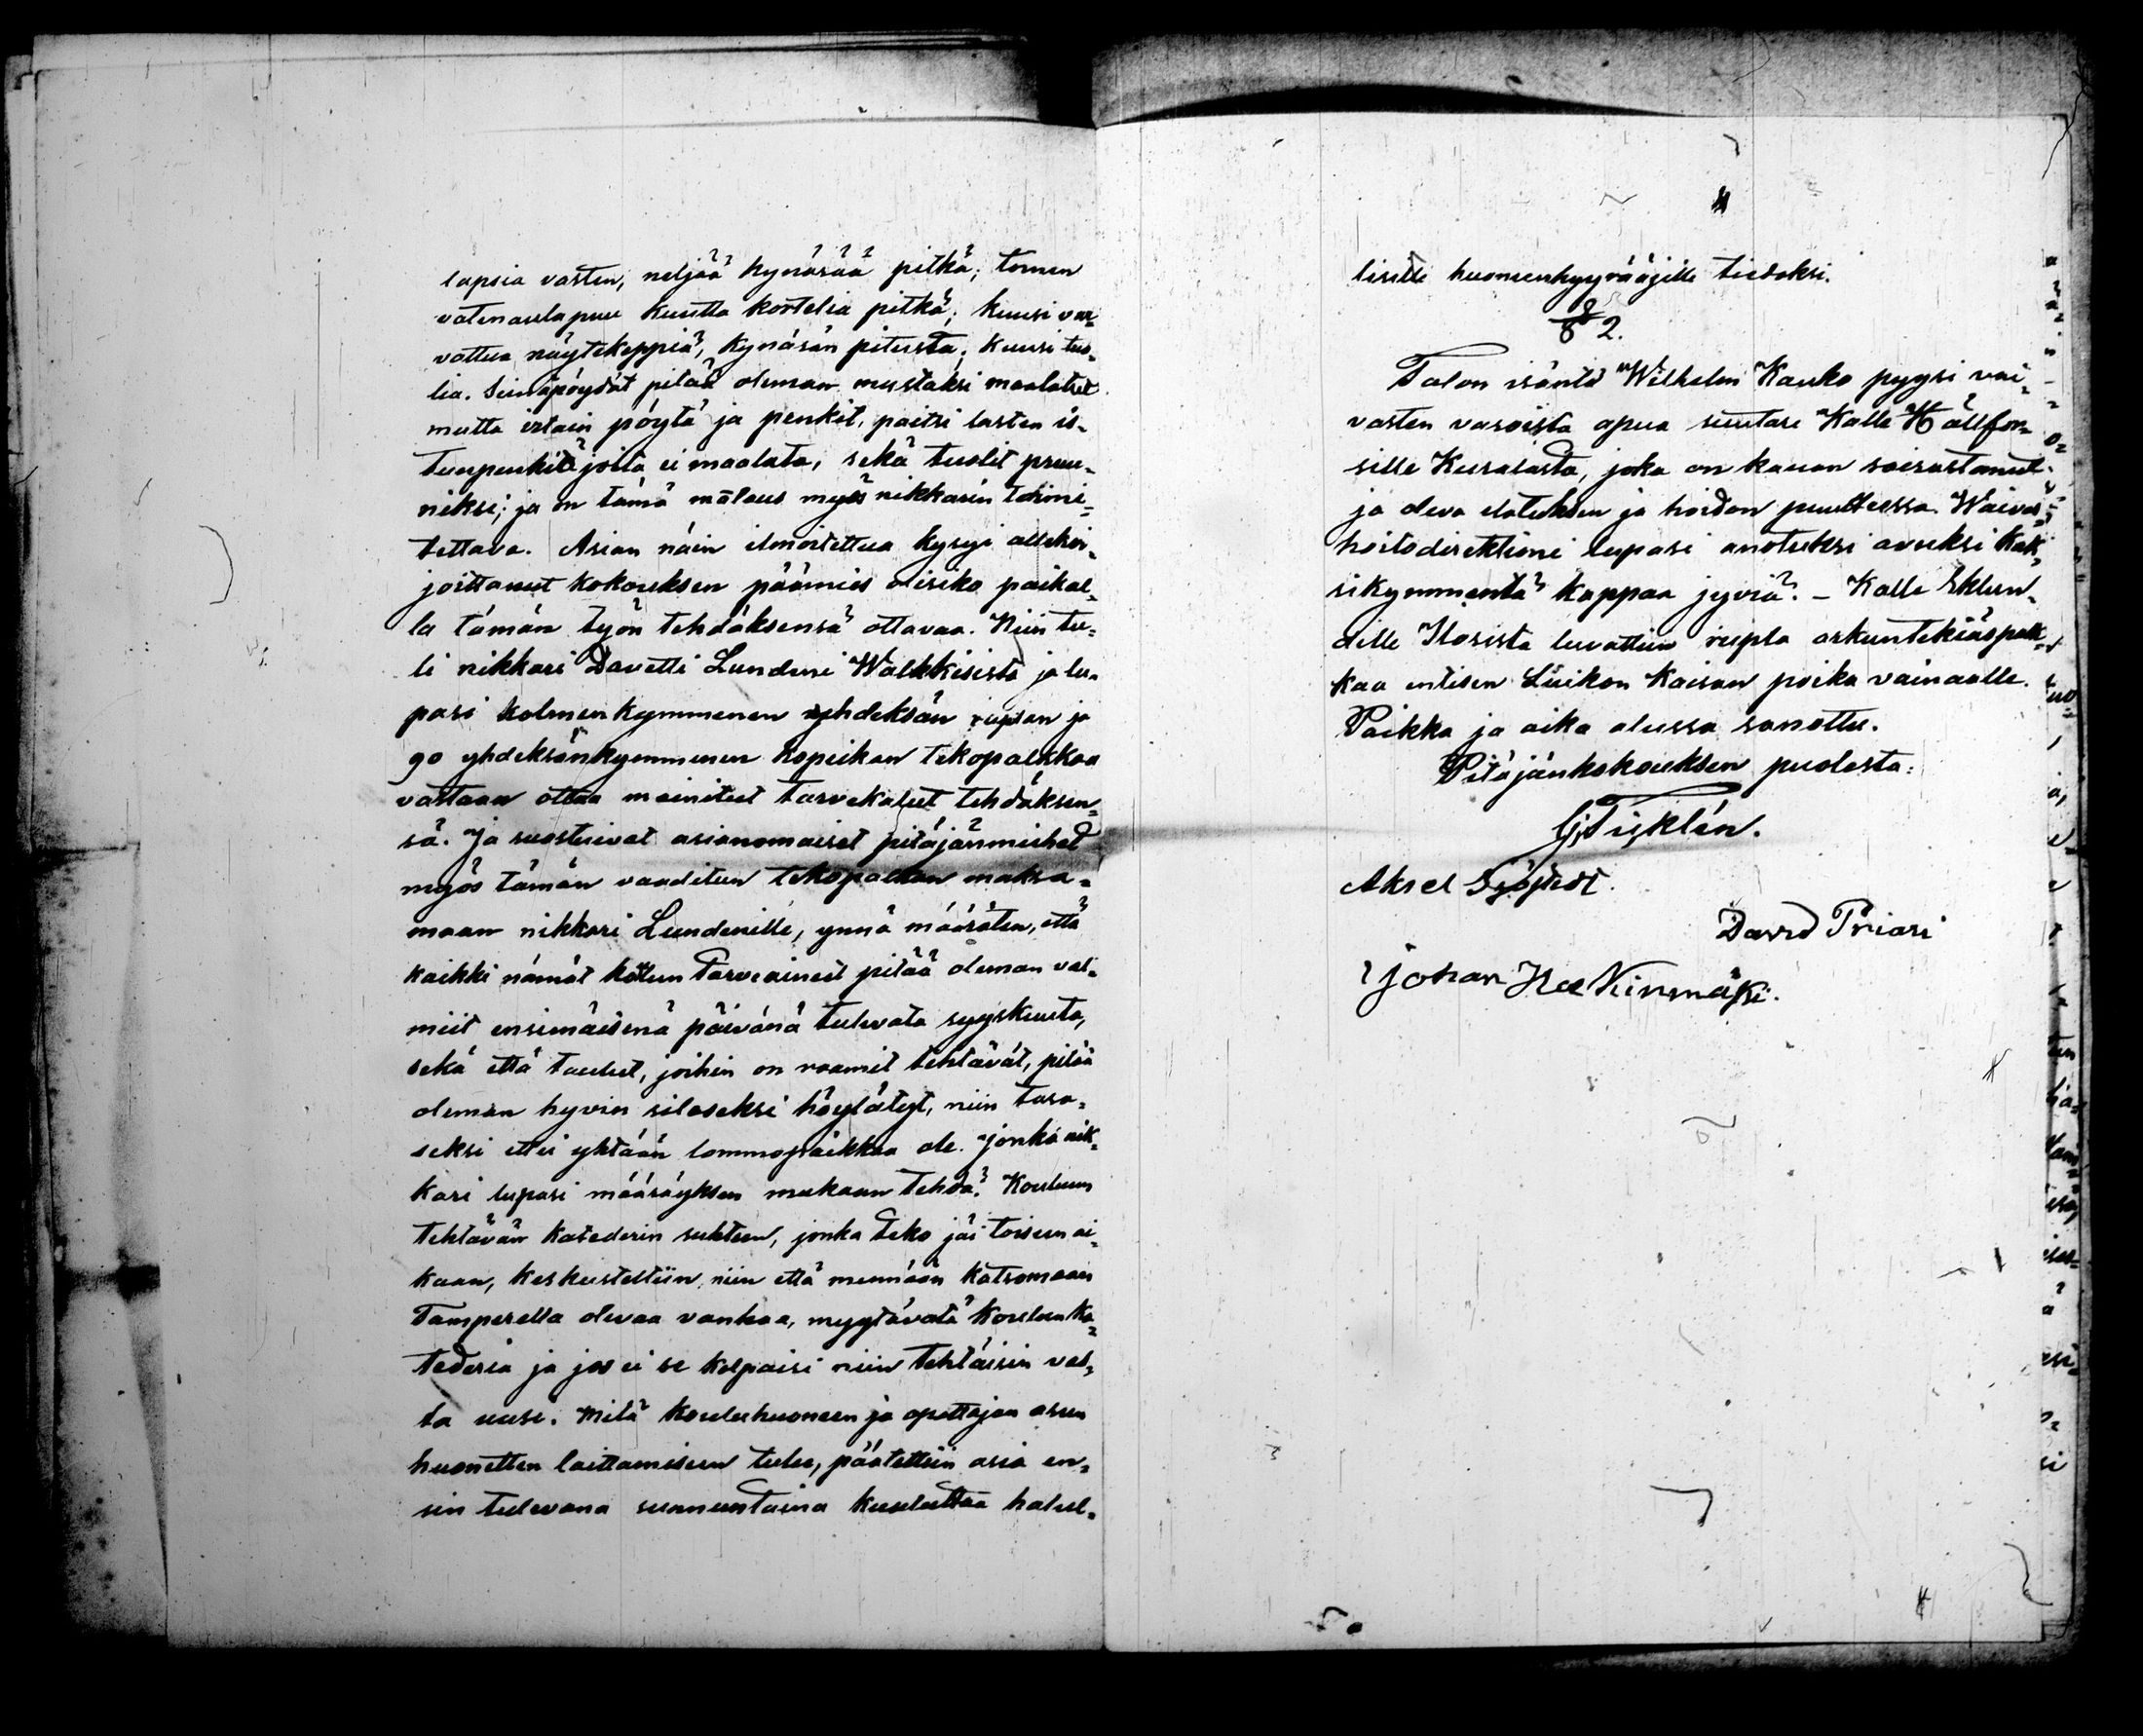 lapsia vasten, neljää kynärää pitkä; toinen
vatenaulapuu kuutta kortelia pitkä; kuusi var-
vattua näytekeppiä, kynärän pitusta; kuusi tuo-
lia. Seinäpöydät pitää oleman mustaksi maalatut
mutta irtain pöytä ja penkit, paitsi lasten is-
tuupenkit joita ei maalata, sekä tuolit pruu-
niksi; ja on tämä mälaus myös nikkarin toimi-
tettava. Asian näin ilmoitettua kysyi allekir-
joittanut kokouksen päämies olisiko paikal-
la tämän työn tehdäksensä ottavaa. Niin tu-
li nikkari Davetti Lundeni Walkkisista ja lu-
pasi kolmenkymmenen yhdeksän ruplan ja
90 yhdeksänkymmenen kopeikan tekopalkkaa
vastaan ottaa mainitut tarvekalut tehdäksen-
sä. Ja suostuivat asianomaiset pitäjänmiehet
myös tämän vaaditun tekopalkan maksa-
maan nikkari Lundenille, ynnä määräten, että
kaikki nämät koulun tarveaineet pitää oleman val-
miit ensimäisenä päivänä tulevata syyskuuta,
sekä että taulut, joihin on raamit tehtävät, pitää
oleman hyvin silaseksi höylätyt, niin tasa-
seksi ettei yhtään lommopaikkaa ole. Jonka nik-
kari lupasi määräyksen mukaan tehdä. Kouluun
tehtävän katederin suhteen, jonka teko jäi toiseen ai-
kaan, keskusteltiin niin että mennään katsomaan
Tamperella olevaa vanhaa, myytävätä koulun ka-
tederia ja jos ei se kelpaisi niin tehtäisiin val-
ta uusi. Mitä kouluhuoneen ja opettajan asun
huonetten laittamiseen tulee, päätettiin asia en-
sin tulevana sunnuntaina kuuluttaa halul-
lisille huoneenhyyrääjille tiedoksi.
§ 2.
Talon isäntä Wilhelm Kauko pyysi vai-
vasten varoista apua suutari Kalle Hällfor-
sille Kuralasta, joka on kauan sairastanut
ja oleva elatuksen ja hoidon puutteessa. Waivas-
hoitodirektioni lupasi anotuksi avuksi kak-
sikymmentä kappaa jyviä. - Kalle Eklun-
dille Ilosista luvattiin rupla arkuntekiäspalk-
kaa entisen Liikon Kaisan poika vainaalle.
Paikka ja aika alussa sanottu.
Pitäjänkokouksen puolesta:
Aksel Sjöstedt.
David Priari
Johan